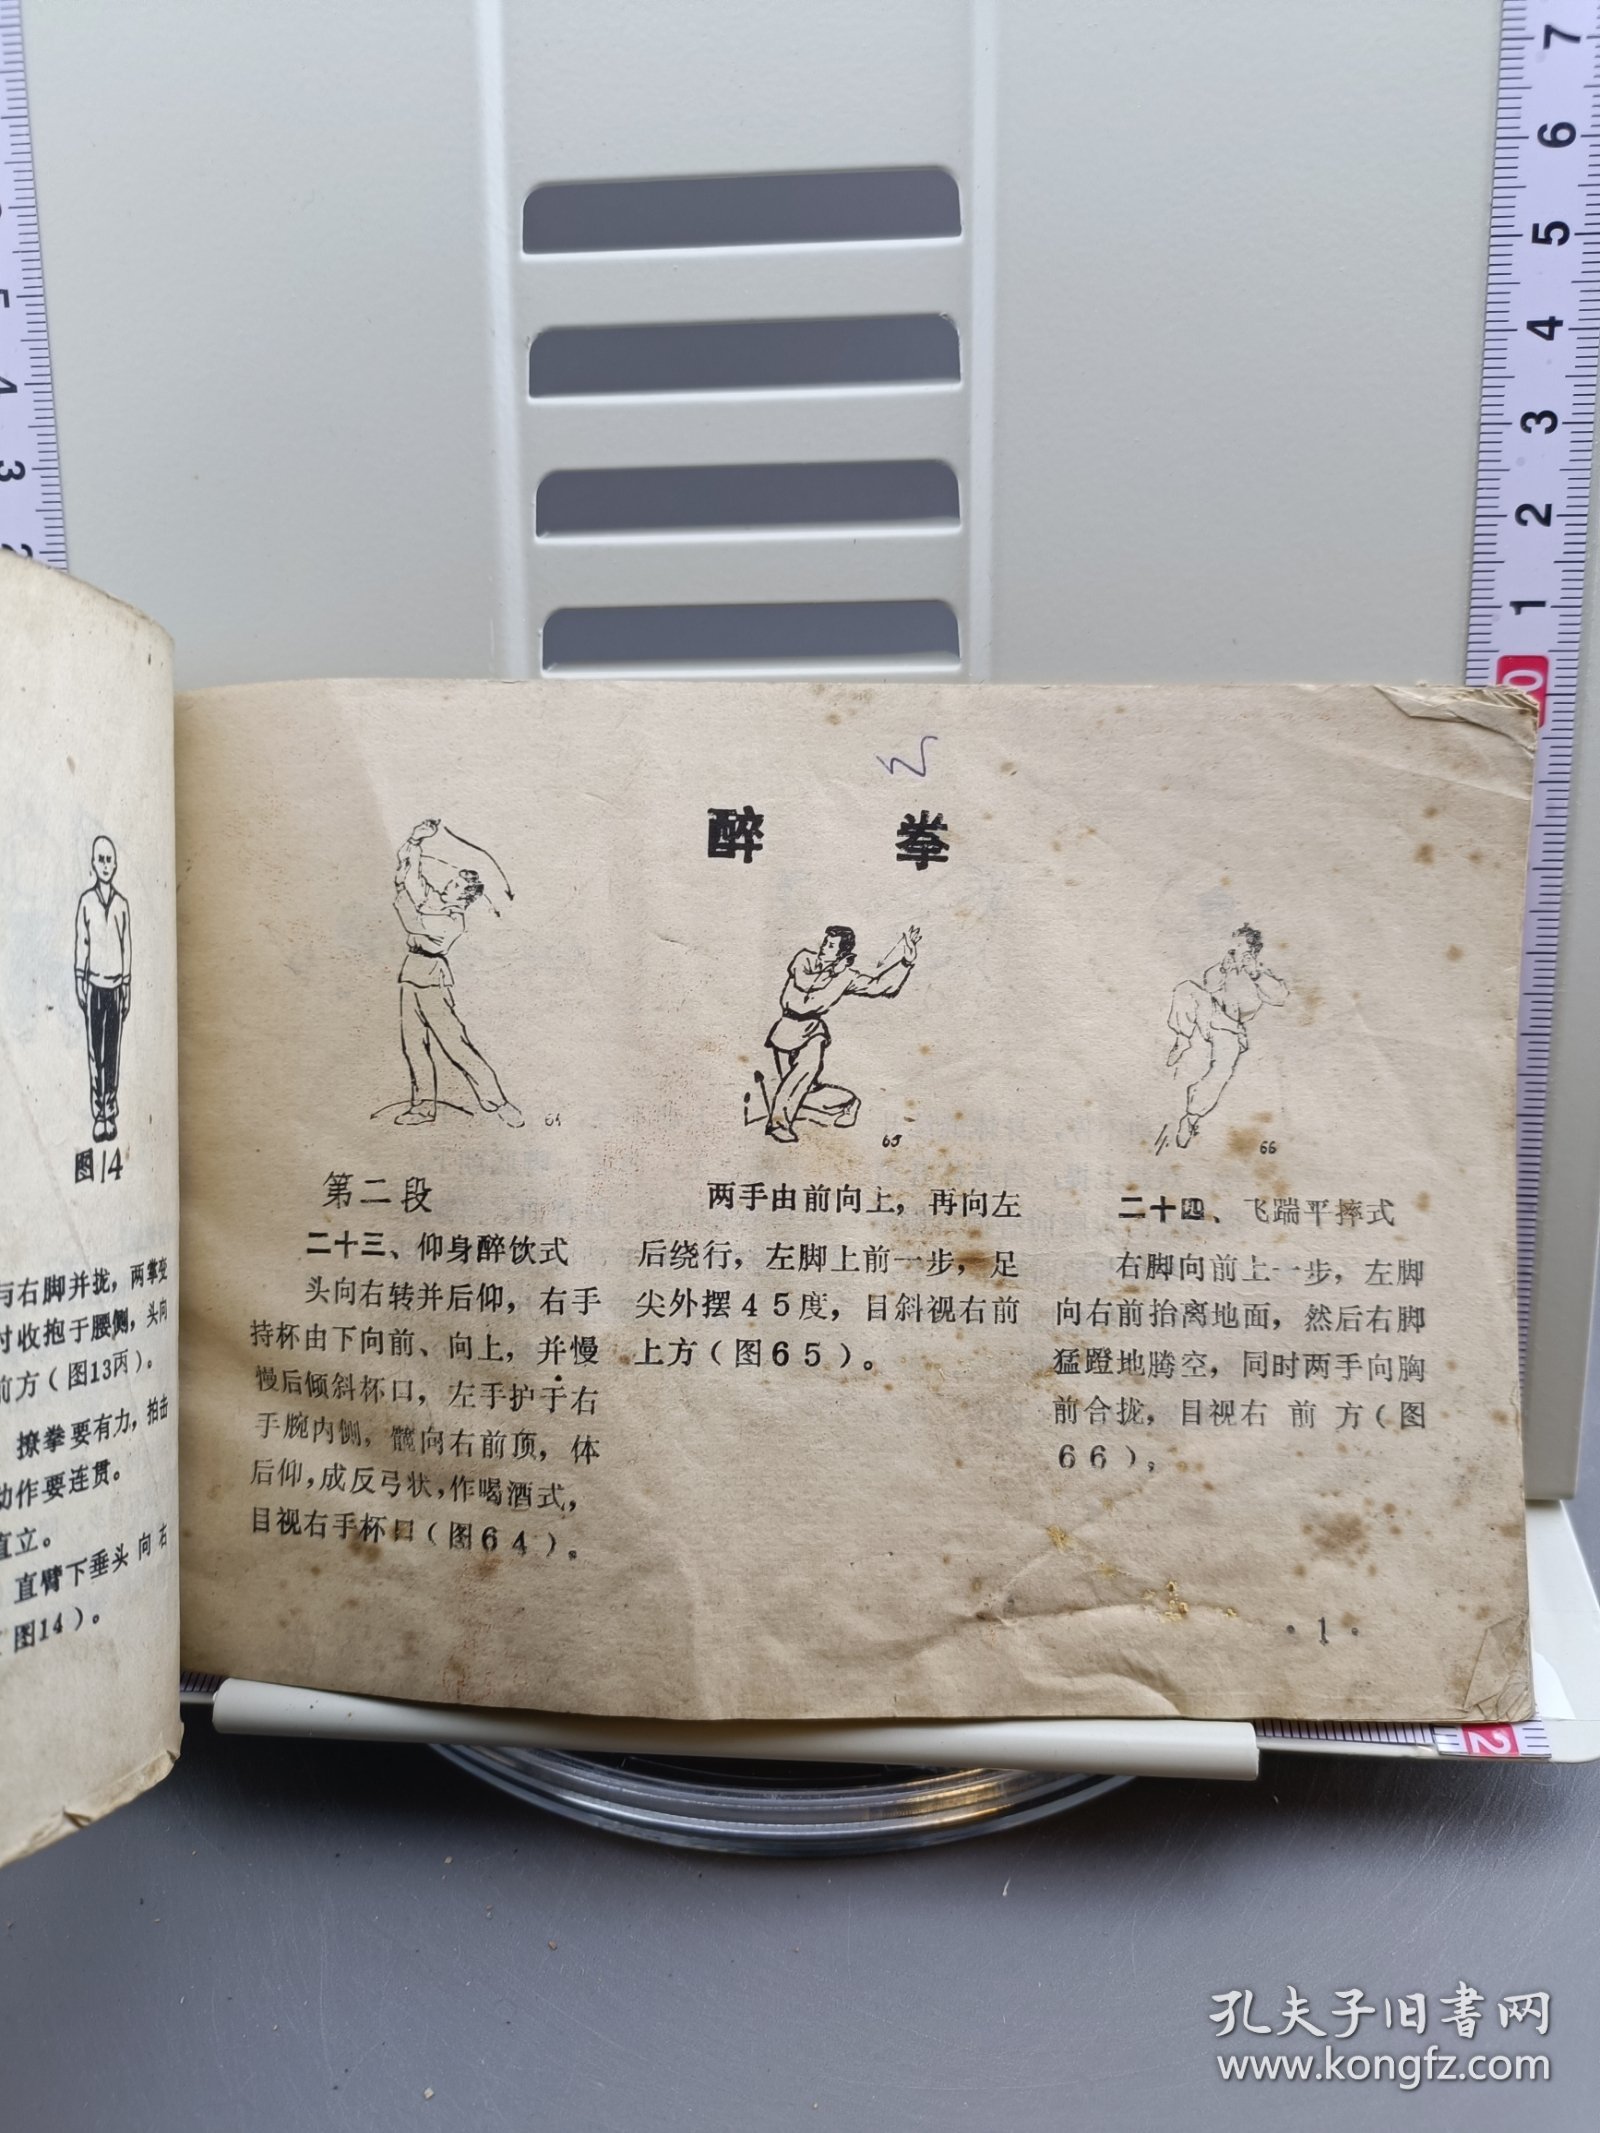 图14
与右脚并拢，两掌变
时收抱于腰侧，头向
前方（图13丙）。
撩拳要有力，拍击
动作要连贯。
直立。
直臂下垂头向右
（图14）。
醉 拳
64
65
66
第二段
二十三、仰身醉饮式
头向右转并后仰，右手
持杯由下向前、向上，并慢
慢后倾斜杯口，左手护于右
手腕内侧，髋向右前顶，体
后仰，成反弓状，作喝酒式，
目视右手杯口（图64）。
两手由前向上，再向左
后绕行，左脚上前一步，足
尖外摆45度，目斜视右前
上方（图65）。
二十四、飞踹平摔式
右脚向前上一步，左脚
向右前抬离地面，然后右脚
猛蹬地腾空，同时两手向胸
前合拢，目视右前方（图
66）。
·1·
7
6
5
4
3
2
1
0
5
4
3
2
2
孔夫子旧书网
www.kongfz.com